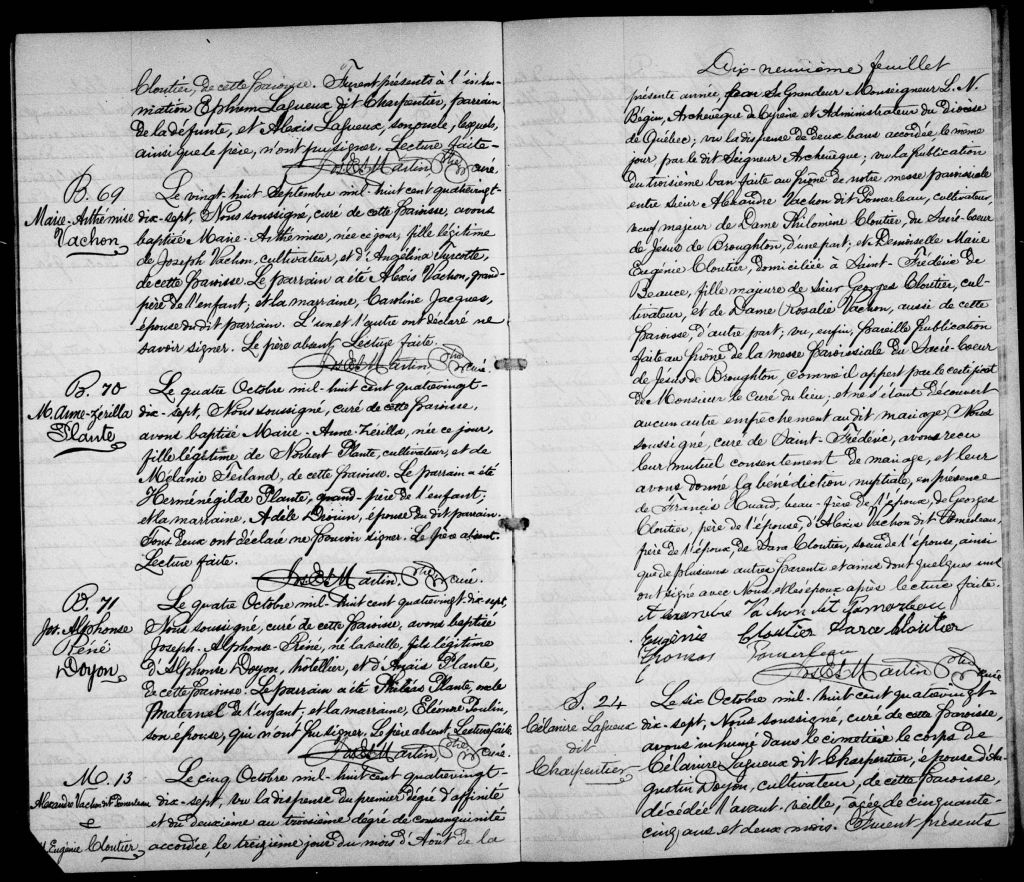 Cloutier, de cette paroisse. Furent présents à l'inhu-
mation Ephrem Lagueux dit Charpentier, parrain
de la défunte, et Alexis Lagueux, son oncle, lesquels,
ainsi que le père, n'ont pu signer. Lecture faite.
Jos. Et. Martin Ptre curé.
B. 69
Marie-Arthémise
Vachon
Le vingt-huit Septembre mil-huit cent quatrevingt-
dix-sept, Nous soussigné, curé de cette paroisse, avons
baptisé Marie-Arthémise, née ce jour, fille légitime
de Joseph Vachon, cultivateur, et d'Angélina Turcotte,
de cette paroisse. Le parrain a été Alexis Vachon, grand-
père de l'enfant; et la marraine, Caroline Jacques,
épouse du dit parrain. L'un et l'autre ont déclaré ne
savoir signer. Le père absent. Lecture faite.
Jos. Et. Martin Ptre curé.
B. 70
M. Anne-Zérilla
Plante
Le quatre Octobre mil-huit cent quatrevingt-
dix-sept, Nous soussigné, curé de cette paroisse,
avons baptisé Marie-Anne-Zérilla, née ce jour,
fille légitime de Norbert Plante, cultivateur, et de
Mélanie Ferland, de cette paroisse. Le parrain a été
Herménégilde Plante, grand-père de l'enfant;
et la marraine, Adèle Drouin, épouse du dit parrain.
Tous deux ont déclaré ne pouvoir signer. Le père absent.
Lecture faite.
Jos. Et. Martin Ptre curé.
B. 71
Jos. Alphonse
René
Doyon
Le quatre Octobre mil-huit cent quatrevingt-dix-sept,
Nous soussigné, curé de cette paroisse, avons baptisé
Joseph-Alphonse-Réné, né la veille, fils légitime
d'Alphonse Doyon, hôtellier, et d'Anaïs Plante,
de cette paroisse. Le parrain a été Philéas Plante, oncle
maternel de l'enfant, et la marraine, Eléonre Poulin,
son épouse, qui n'ont pu signer. Le père absent. Lecture faite.
Jos. Et. Martin Ptre curé.
M. 13
Alexandre Vachon dit Pomerleau
&
M. Eugénie Cloutier
Le cinq Octobre mil-huit cent quatrevingt-
dix-sept, vu la dispense du premier dégré d'affinité
et du deuxième au troisième dégré de consanguinité
accordée, le treizième jour du mois d'Août de la
Dix-neuvième feuillet
présente année, par Sa Grandeur Monseigneur L. N.
Bégin, Archevêque de Cyrène et Administrateur du diocèse
de Québec; vu la dispense de deux bans accordée le même
jour, par le dit Seigneur Archevêque; vu la publication
du troisième ban faite au prône de notre messe paroissiale
entre Sieur Alexandre Vachon dit Pomerleau, cultivateur,
veuf majeur de Dame Philomène Cloutier, du Sacré-Coeur
de Jésus de Broughton, d'une part; et Demoiselle Marie
Eugénie Cloutier, domiciliée à Saint-Frédéric de
Beauce, fille majeure de Sieur Georges Cloutier, cul-
tivateur, et de Dame Rosalie Vachon, aussi de cette
paroisse, d'autre part; vu, enfin, pareille publication
faite au prône de la messe paroissiale du Sacré-Coeur
de Jésus de Broughton, comme il appert par le certificat
de Monsieur le Curé du lieu; et ne s'étant découvert
aucun autre empêchement au dit mariage, Nous
soussigné, curé de Saint-Frédéric, avons reçu
leur mutuel consentement de mariage, et leur
avons donné la bénédiction nuptiale, en présence
de Francis Huard, beau-frère de l'époux, de Georges
Cloutier, père de l'épouse, d'Alexis Vachon dit Pomerleau,
frère de l'époux de Cloutier, soeur de l'épouse, ainsi
que de plusieurs autres parents et amis dont quelques uns
ont signé avec Nous et les époux après lecture faite.
Alexandre Vachon dit Pomerleau
Eugénie Cloutier Cloutier
Pomerleau
Jos. Et. Martin Ptre curé
S. 24
Célanire Lagueux
dit
Charpentier
Le six Octobre mil-huit cent quatrevingt-
dix-sept, Nous soussigné, curé de cette paroisse,
avons inhumé dans le cimetière le corps de
Célanire Lagueux dit Charpentier, épouse d'Au-
gustin Doyon, cultivateur, de cette paroisse,
décédée l'avant-veille, âgée de cinquante-
cinq ans et deux mois. Furent présents